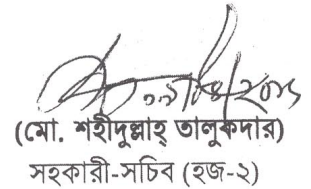 (মো. শহীদুল্লাহ্ তালুকদার)
সহকারী-সচিব (হজ-২)